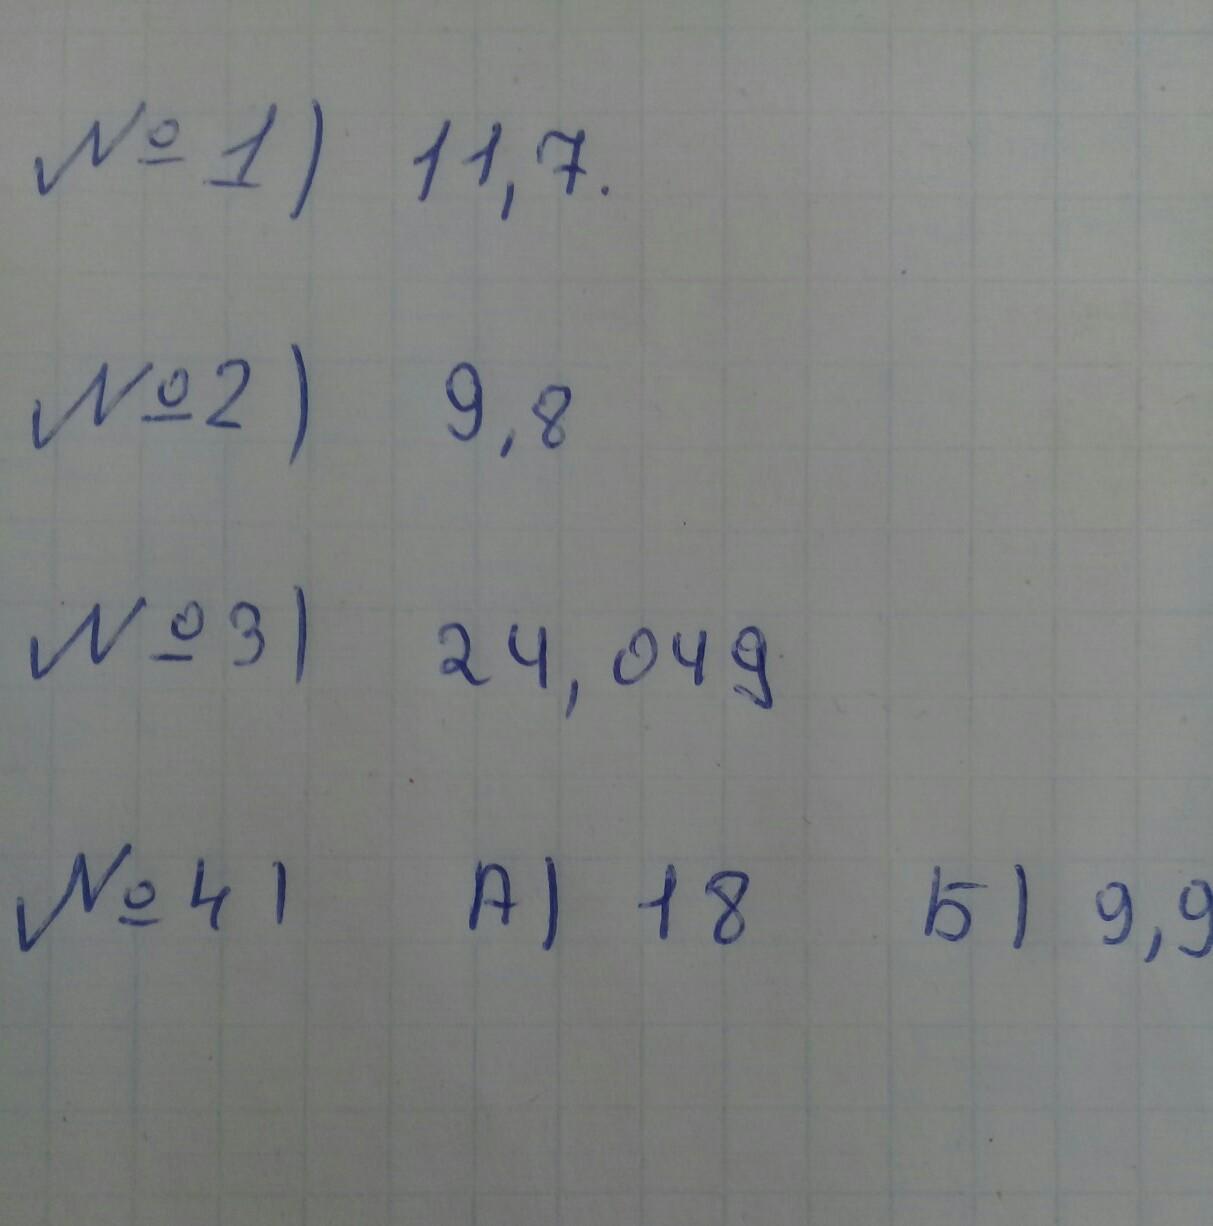 № 1) 11,7.
№2) 9,8
№3) 24,049
№4) А) 18 Б) 9,9